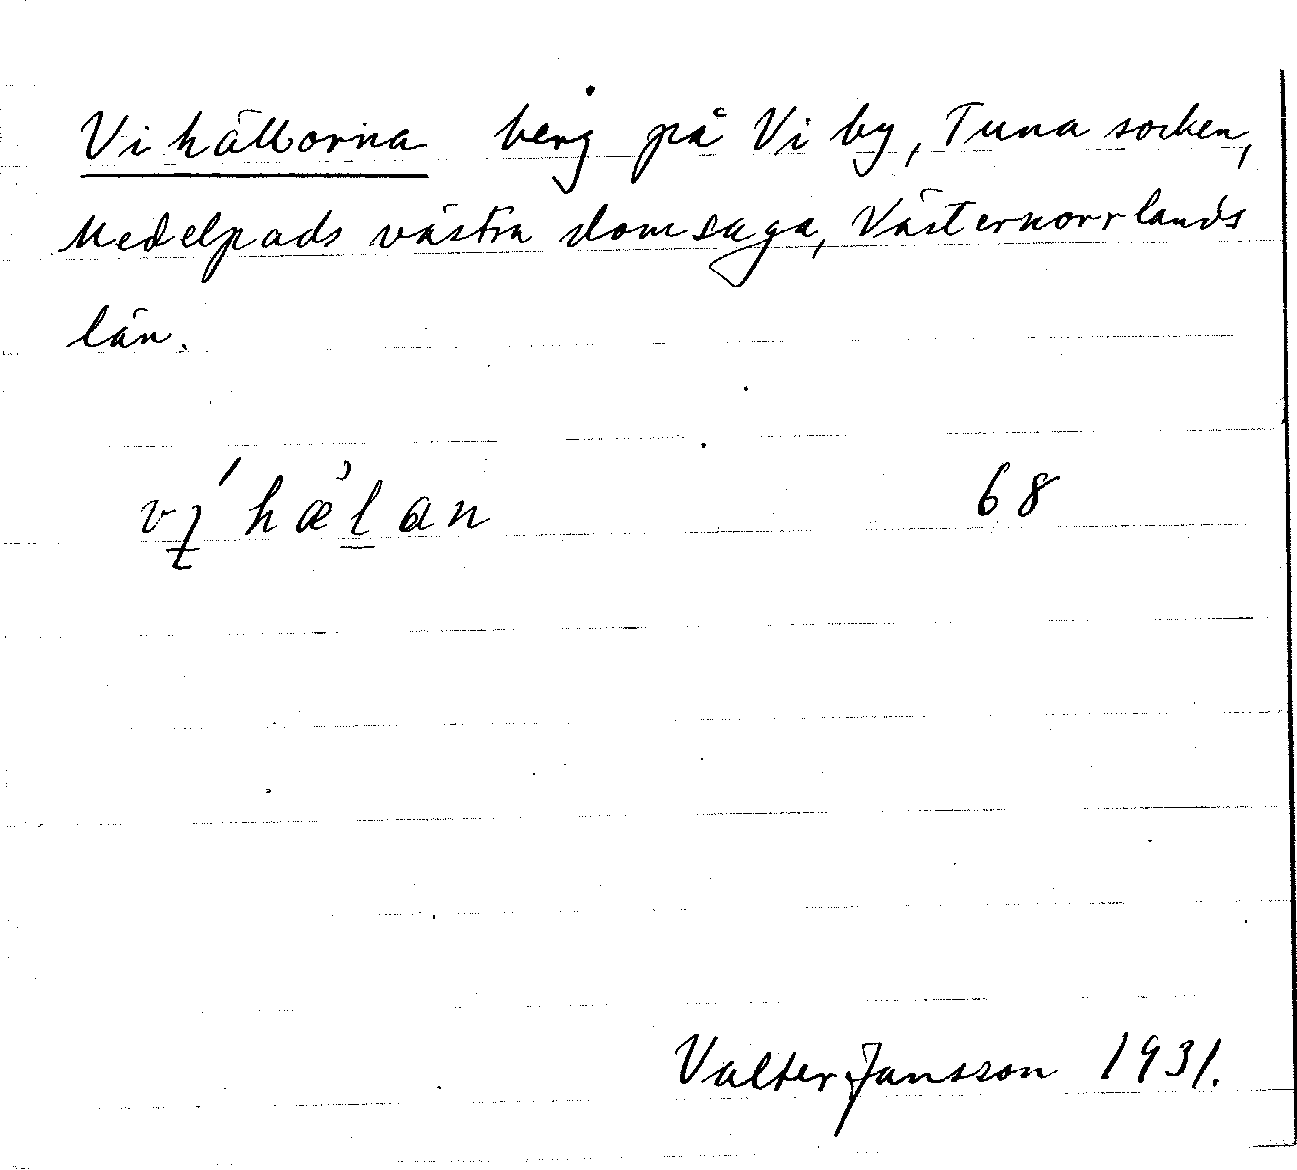 Vihällorna berg på Vi by, Tuna socken,
Medelpads västra domsaga, Västernorrlands
län.
68
Valter Jansson 1931.